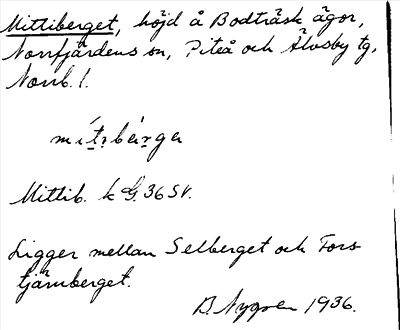 Mittiberget, höjd å Bodträsk ägor,
Norrfjärdens sn, Piteå och Älvsby tg,
Norrb. l.
Mittib. k G. 36 SV.
Ligger mellan Selberget och Fors
tjärnberget.
D. Nygren 1936.